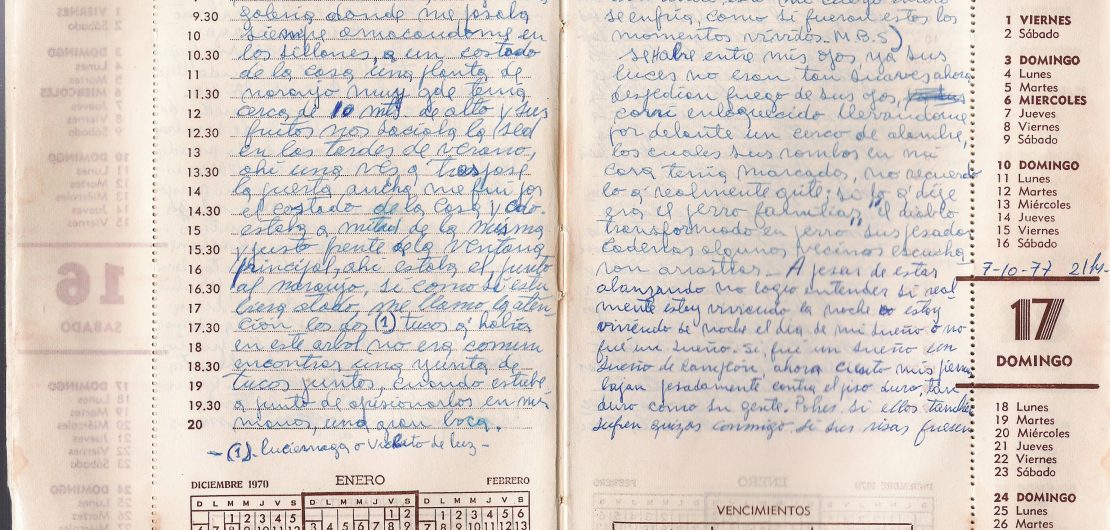 9.30 galeria donde me pasaba
10 siempre amacandome en
10.30 los sillones, a un costado
de la casa una planta de
11 naranjo muy que tenia
11.30 cerca de 10 mts de alto y sus
12 frutos nos saciaba la sed
12.30 en las tardes de verano,
13 ahi una ves a traspasé
13.30 la puerta ancha me fui por
14 el costado de la casa y cdo.
14.30 estaba a mitad de la misma
15 y justo frente de la ventana
15.30 principal, ahi estaba el, junto
16 al naranjo, si como si estu
16.30 biera atado, me llamo la aten
17 cion los dos (1) tucos q' habia
17.30 en este arbol no era comun
18 encontrar una yunta de
18.30 tucos juntos, cuando estube
19 a punto de apisionarlos en mis
19.30 manos, una gran boca.
20
- (1). luciernaga o vichito de luz -
DICIEMBRE 1970 ENERO FEBRERO
D L M M J V S D L M M J V S D L M M J V S
1 2 3 4 5 1 2 1 2 3 4 5 6
6 7 8 9 10 11 12 3 4 5 6 7 8 9 7 8 9 10 11 12 13
se enfria, como si fueran estos los
momentos vividos. M.B.S)
se abre entre mis ojos, ya sus
luces no eran tan suaves ahora
despedian fuego de sus ojos,
corri enloquecido llevandome
por delante un cerco de alambre,
los cuales sus rombos en mi
cara tenia marcados, no recuerdo
lo q' realmente grité; si lo q' dije
era el perro familiar, "el diablo"
transformado en perro sus pesadas
cadenas algunos vecinos escucha
ron arrastrar. - A pesar de estar
alcanzando no logro entender si real
mente estoy viviendo la noche o estoy
viviendo de noche el dia de mi sueño o no
fué un sueño. Si, fué un sueño un
sueño de campeon, ahora cuando mis piernas
bajan pesadamente contra el piso duro, tan
duro como su gente. Pobres, si ellos tambien
sufren quizas conmigo. si sus risas fueran
VENCIMIENTOS
1 VIERNES
2 Sábado
3 DOMINGO
4 Lunes
5 Martes
6 MIERCOLES
7 Jueves
8 Viernes
9 Sábado
10 DOMINGO
11 Lunes
12 Martes
13 Miércoles
14 Jueves
15 Viernes
16 Sábado
7-10-77 21 hs.
17
DOMINGO
18 Lunes
19 Martes
20 Miércoles
21 Jueves
22 Viernes
23 Sábado
24 DOMINGO
25 Lunes
26 Martes